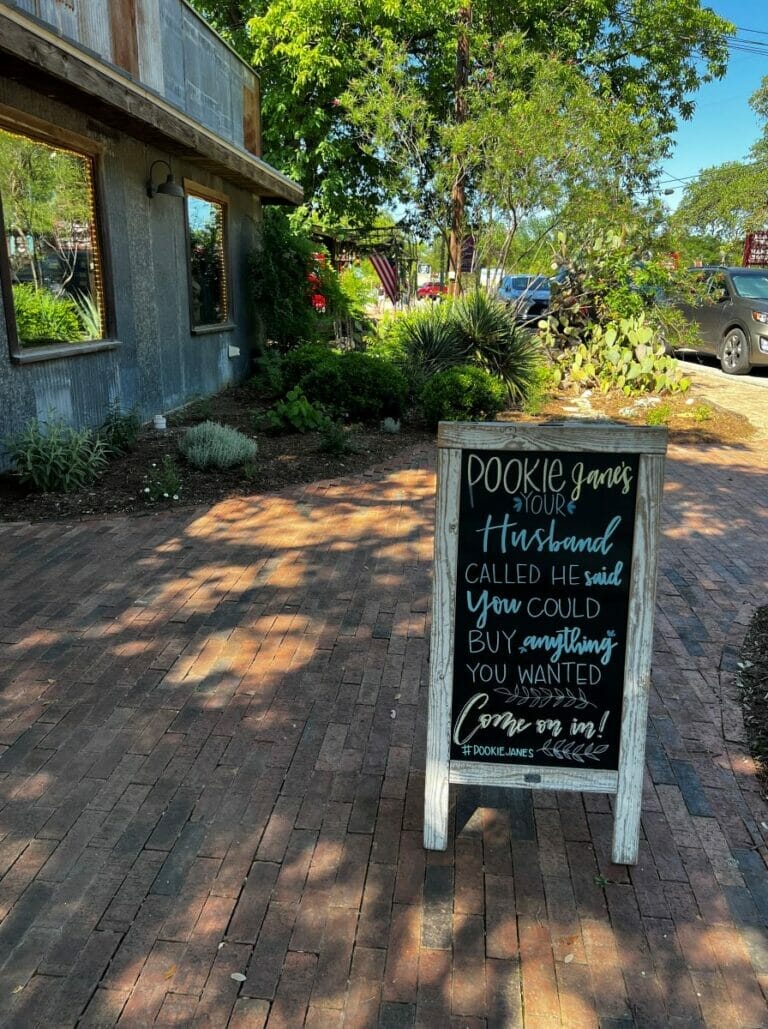 POOKIE Jane's
YOUR
Husband
CALLED HE said
You COULD
BUY anything
YOU WANTED
Come on in!
#POOKIEJANES